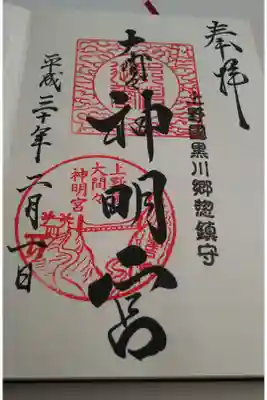 奉拝
上野國黒川郷惣鎮守
大間々
神明宮
上野
大間々
神明宮
平成三十年二月六日